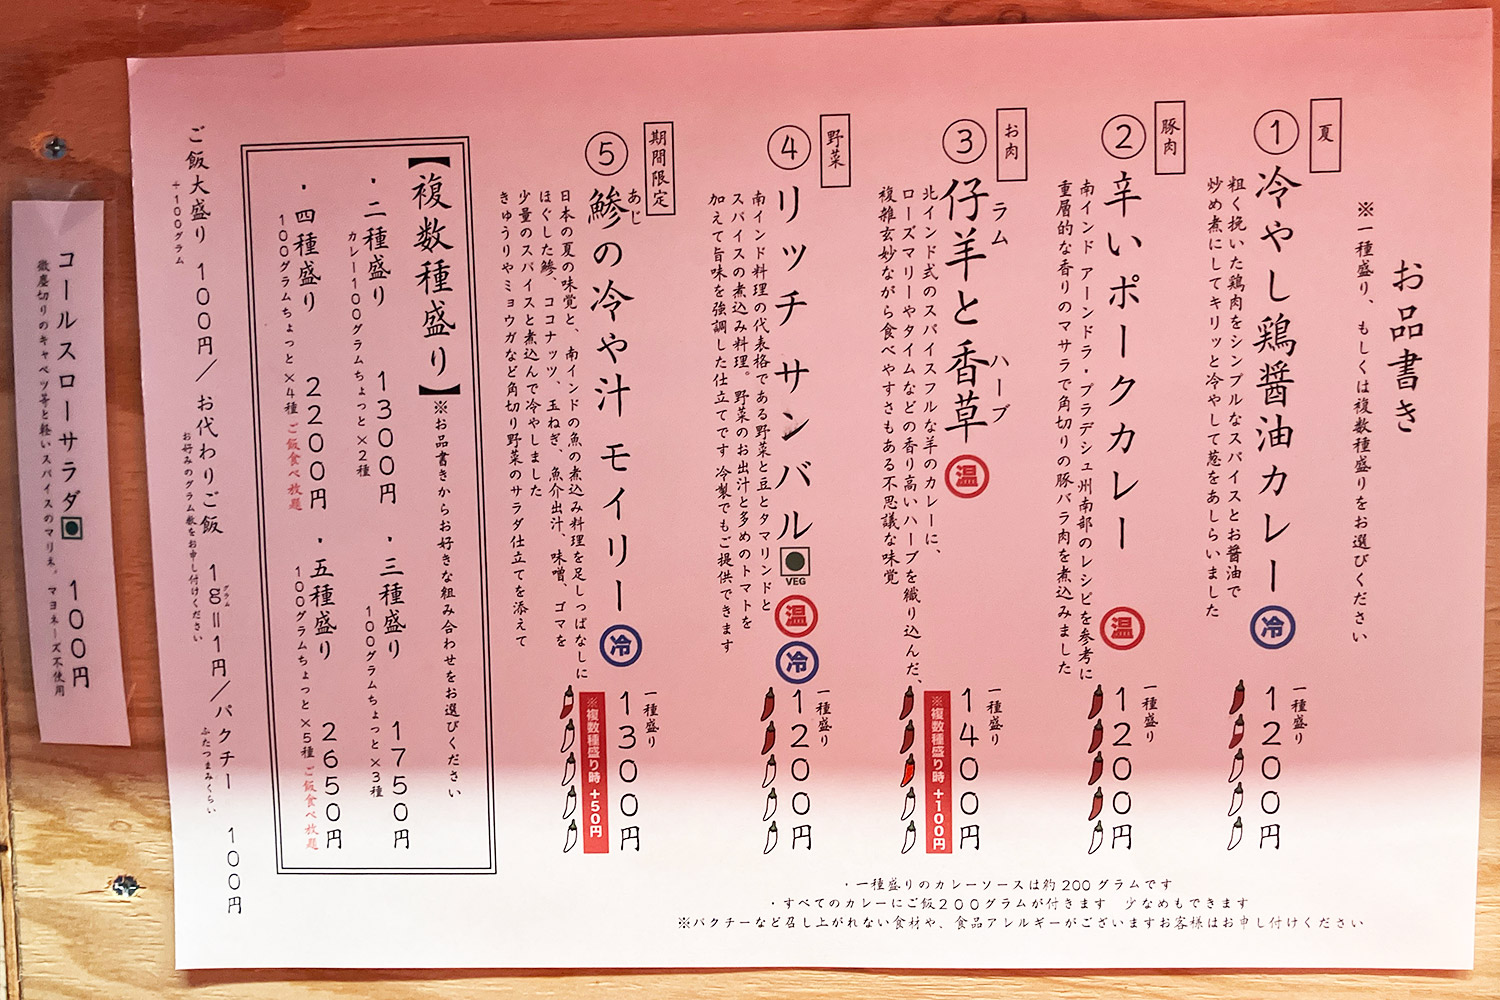 お品書き
※一種盛り、もしくは複数種盛りをお選びください
夏
①冷やし鶏醤油カレー 冷
粗く挽いた鶏肉をシンプルなスパイスとお醤油で
炒め煮にしてキリッと冷やして葱をあしらいました
一種盛り
1200円
豚肉
②辛いポークカレー 温
南インド アーンドラ・プラデシュ州南部のレシピを参考に
重層的な香りのマサラで角切りの豚バラ肉を煮込みました
一種盛り
1200円
お肉
ラム ハーブ
③仔羊と香草 温
北インド式のスパイスフルな羊のカレーに、
ローズマリーやタイムなどの香り高いハーブを織り込んだ、
複雑玄妙ながら食べやすさもある不思議な味覚
一種盛り
1400円
※複数種盛り時 +100円
野菜
④リッチ サンバル VEG 温 冷
南インド料理の代表格である野菜と豆とタマリンドと
スパイスの煮込み料理。野菜のお出汁と多めのトマトを
加えて旨味を強調した仕立てです 冷製でもご提供できます
一種盛り
1200円
期間限定
あじ
⑤鯵の冷や汁 モイリー 冷
日本の夏の味覚と、南インドの魚の煮込み料理を足しっぱなしに
ほぐした鯵、ココナッツ、玉ねぎ、魚介出汁、味噌、ゴマを
少量のスパイスと煮込んで冷やしました
きゅうりやミョウガなど角切り野菜のサラダ仕立てを添えて
一種盛り
1300円
※複数種盛り時 +50円
【複数種盛り】※お品書きからお好きな組み合わせをお選びください
・二種盛り 1300円
カレー100グラムちょっと×2種
・三種盛り 1750円
100グラムちょっと×3種
・四種盛り 2200円
100グラムちょっと×4種 ご飯食べ放題
・五種盛り 2650円
100グラムちょっと×5種 ご飯食べ放題
ご飯大盛り 100円/お代わりご飯 1g=1円/パクチー 100円
グラム
+100グラム
お好みのグラム数をお申し付けください
ふたつまみくらい
・一種盛りのカレーソースは約200グラムです
・すべてのカレーにご飯200グラムが付きます 少なめもできます
※パクチーなど召し上がれない食材や、食品アレルギーがございますお客様はお申し付けください
コールスローサラダ 100円
微塵切りのキャベツ等と軽いスパイスのマリネ。マヨネーズ不使用